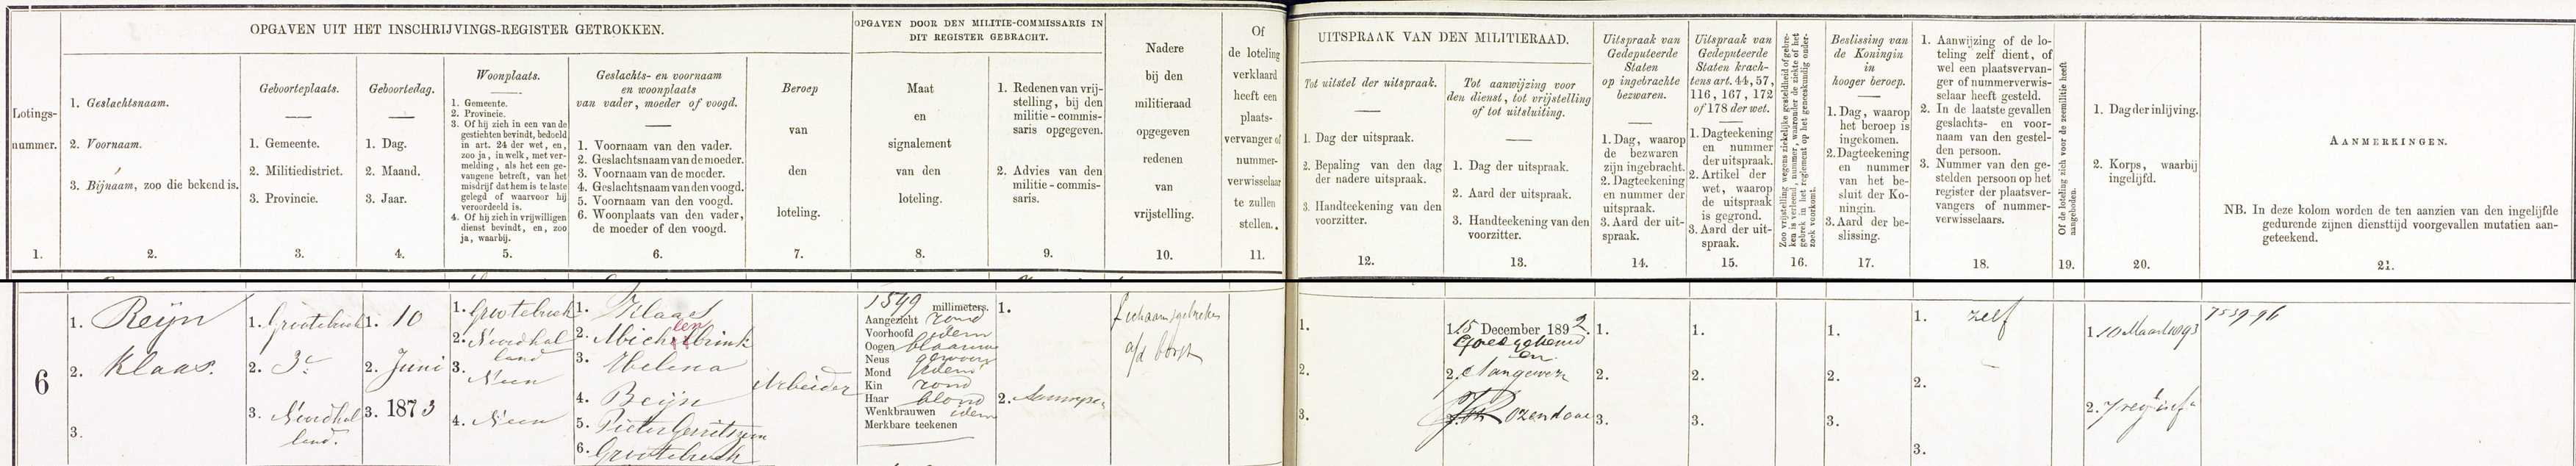 OPGAVEN UIT HET INSCHRIJVINGS-REGISTER GETROKKEN.
OPGAVEN DOOR DEN MILITIE-COMMISSARIS IN
DIT REGISTER GEBRACHT.
Lotings-
nummer.
1.
1. Geslachtsnaam.
2. Voornaam.
3. Bijnaam, zoo die bekend is.
2.
Geboorteplaats.
1. Gemeente.
2. Militiedistrict.
3. Provincie.
3.
Geboortedag.
1. Dag.
2. Maand.
3. Jaar.
4.
Woonplaats.
1. Gemeente.
2. Provincie.
3. Of hij zich in een van de
gestichten bevindt, bedoeld
in art. 24 der wet, en,
zoo ja, in welk, met ver-
melding, als het een ge-
vangene betreft, van het
misdrijf dat hem is te laste
gelegd of waarvoor hij
veroordeeld is.
4. Of hij zich in vrijwilligen
dienst bevindt, en, zoo
ja, waarbij.
5.
Geslachts- en voornaam
en woonplaats
van vader, moeder of voogd.
1. Voornaam van den vader.
2. Geslachtsnaam van de moeder.
3. Voornaam van de moeder.
4. Geslachtsnaam van den voogd.
5. Voornaam van den voogd.
6. Woonplaats van den vader,
de moeder of den voogd.
6.
Beroep
van
den
loteling.
7.
Maat
en
signalement
van den
loteling.
8.
1. Redenen van vrij-
stelling, bij den
militie-commis-
saris opgegeven.
2. Advies van den
militie-commis-
saris.
9.
Nadere
bij den
militieraad
opgegeven
redenen
van
vrijstelling.
10.
Of
de loteling
verklaard
heeft een
plaats-
vervanger of
nummer-
verwisselaar
te zullen
stellen.
11.
UITSPRAAK VAN DEN MILITIERAAD.
Tot uitstel der uitspraak.
1. Dag der uitspraak.
2. Bepaling van den dag
der nadere uitspraak.
3. Handteekening van den
voorzitter.
12.
Tot aanwijzing voor
den dienst, tot vrijstelling
of tot uitsluiting.
1. Dag der uitspraak.
2. Aard der uitspraak.
3. Handteekening van den
voorzitter.
13.
Uitspraak van
Gedeputeerde
Staten
op ingebrachte
bezwaren.
1. Dag, waarop
de bezwaren
zijn ingebracht.
2. Dagteekening
en nummer der
uitspraak.
3. Aard der uit-
spraak.
14.
Uitspraak van
Gedeputeerde
Staten krach-
tens art. 44, 57,
116, 167, 172
of 178 der wet.
1. Dagteekening
en nummer
der uitspraak.
2. Artikel der
wet, waarop
de uitspraak
is gegrond.
3. Aard der uit-
spraak.
15.
Zoo vrijstelling wegens ziekelijke gesteldheid of gebre-
ken is verleend, nummer, waaronder de ziekte of het
gebrek in het reglement op het geneeskundig onder-
zoek voorkomt.
16.
Beslissing van
de Koningin
in
hooger beroep.
1. Dag, waarop
het beroep is
ingekomen.
2. Dagteekening
en nummer
van het be-
sluit der Ko-
ningin.
3. Aard der be-
slissing.
17.
1. Aanwijzing of de lo-
teling zelf dient, of
wel een plaatsvervan-
ger of nummerverwis-
selaar heeft gesteld.
2. In de laatste gevallen
geslachts- en voor-
naam van den gestel-
den persoon.
3. Nummer van den ge-
stelden persoon op het
register der plaatsver-
vangers of nummer-
verwisselaars.
18.
Of de loteling zich voor de zeemilitie heeft
aangeboden.
19.
1. Dag der inlijving.
2. Korps, waarbij
ingelijfd.
20.
AANMERKINGEN.
NB. In deze kolom worden de ten aanzien van den ingelijfde
gedurende zijnen diensttijd voorgevallen mutatien aan-
geteekend.
21.
6
1. Reijn
2. Klaas.
3.
1. Grootebroek
2. 3e
3. Noordhol
land.
1. 10
2. Juni
3. 1873
1. Grootebroek
2. Noordhol
land
3. Neen
4. Neen
1. Klaas
2. Michelbrink
len
3. Helena
4. Beijse
5. Pieter Gerritszoon
6. Grootebroek
Arbeider
1549 millimeters.
Aangezicht rond
Voorhoofd idem
Oogen blaauw
Neus gewoon
Mond idem
Kin rond
Haar blond
Wenkbrauwen idem
Merkbare teekenen
1.
2.
lichaamsgebreken
a/d borst
1.
2.
3.
1. 15 December 1892.
Goedgekeurd
en
2. Aangewezen
3. Ozendaal
1.
2.
3.
1.
2.
3.
1.
2.
3.
1. zelf
2.
3.
1. 10 Maart 1893
2. 7 reg inf
7539-96